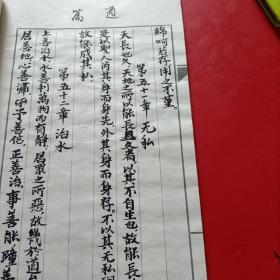 綿呵若存用之不堇
第五十一章 无私
天長地久天地之所以能長且久者以其不自生也故能長
是以聖人芮其身而身先外其身而身存不以其无私
故能成其私
第五十二章 治水
上善治水水善利萬物而有靜居眾之所惡故幾於道
居善地心善淵予善信正善治事善能